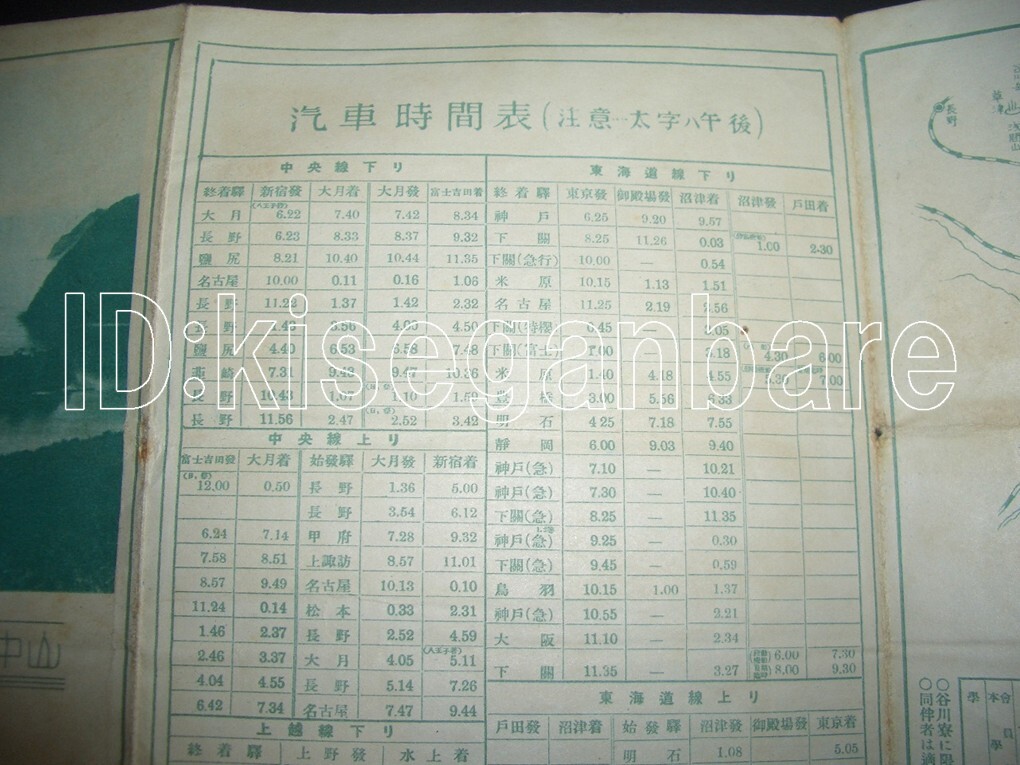 汽車時間表(注意一太字ハ午後)
中央線下リ
終着驛 新宿發 大月着 大月發 富士吉田着
大月 (八王子發) 6.22 7.40 7.42 8.34
長野 6.23 8.33 8.37 9.32
鹽尻 8.21 10.40 10.44 11.35
名古屋 10.00 0.11 0.16 1.06
長野 1.37 1.42 2.32
野 4.50
鹽尻 4.40 6.53 6.58 7.48
韮崎 7.31 9.47 10.36
長野 10.43 1.07 1.10 1.59
長野 11.56 2.47 2.52 3.42
中央線上リ
富士吉田發 大月着 始發驛 大月發 新宿着
12.00 0.50 長野 1.36 5.00
長野 3.54 6.12
6.24 7.14 甲府 7.28 9.32
7.58 8.51 上諏訪 8.57 11.01
8.57 9.49 名古屋 10.13 0.10
11.24 0.14 松本 0.33 2.31
1.46 2.37 長野 2.52 4.59
2.46 3.37 大月 4.05 (八王子着) 5.11
4.04 4.55 長野 5.14 7.26
6.42 7.34 名古屋 7.47 9.44
上越線下リ
終着驛 上野發 水上着
東海道線下リ
終着驛 東京發 御殿場發 沼津着 沼津發 戶田着
神戶 6.25 9.20 9.57
下關 8.25 11.26 0.03 1.00 2.30
下關(急行) 10.00 — 0.54
米原 10.15 1.13 1.51
名古屋 11.25 2.19 2.56
下關(特櫻) — 3.05
下關(富士) — 3.18 4.30 6.00
米原 1.40 4.18 4.55 5.30 7.00
3.00 5.56 6.33
明石 4.25 7.18 7.55
靜岡 6.00 9.03 9.40
神戶(急) 7.10 — 10.21
神戶(急) 7.30 — 10.40
下關(急) 8.25 — 11.35
神戶(急) 9.25 — 0.30
下關(急) 9.45 — 0.59
鳥羽 10.15 1.00 1.37
神戶(急) 10.55 — 2.21
大阪 11.10 — 2.34
6.00 7.30
下關 11.35 — 3.27 8.00 9.30
東海道線上リ
戶田發 沼津着 始發驛 沼津發 御殿場發 東京着
明石 1.08 5.05
長野
草津
中山
學
本會
員
學
○谷川寮に限
○同伴者は適
ID:kiseganbare